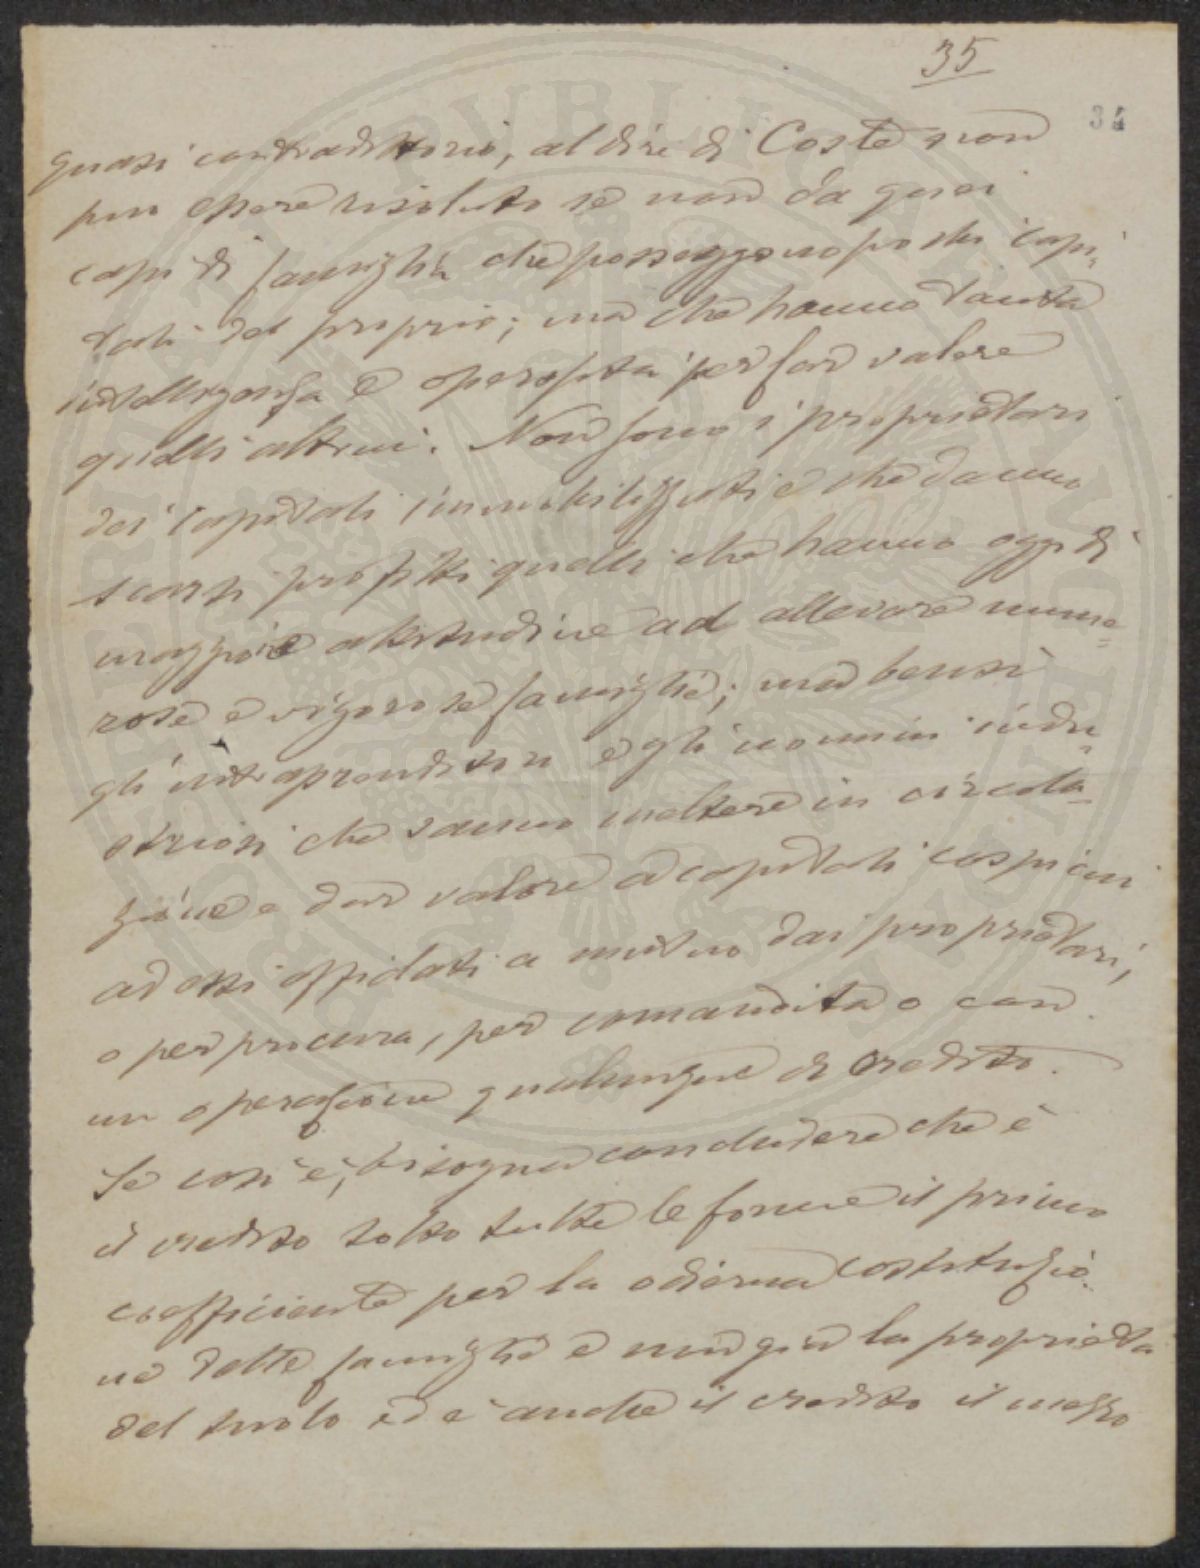 35
34
quasi contradittorio, al dire di Coste non
può essere risoluto se non da quei
capi di famiglia che posseggono pochi capi-
tali del proprio; ma che hanno tanta
intelligenza e operosità per far valere
quelli altrui. Non sono i proprietari
dei capitali immobilizzati e che danno
scarsi profitti quelli che hanno oggidì
maggiore attitudine ad allevare nume-
rose e vigorose famiglie; ma bensì
gl'intraprenditori e gli uomini indu-
striosi che sanno mettere in circola-
zione e dar valore a capitali cospicui
ad essi affidati a mutuo dai proprietari,
o per procura, per comandita o con
un operazione qualunque di credito.
Se così è, bisogna concludere che è
il credito sotto tutte le forme il primo
coefficiente per la odierna costituzio-
ne delle famiglie e non già la proprietà
del suolo ed è anche il credito il mezzo
PVBLICA